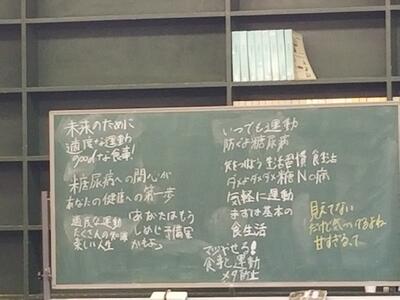 未来のために
適度な運動
goodな食事!
糖尿病への関心が
あなたの健康への第一歩
適度な運動
たくさんの知識
楽しい人生
あなたはもう
しめじ予備軍
かもよ
いつでも運動
防ぐよ糖尿病
気をつけよう 生活習慣 食生活
ダメよダメダメ糖No病
気軽に運動
まずは基本の
食生活
マジやせる!
食事と運動
メタ防止
見えてない
だけど気づけるよね
甘すぎるって